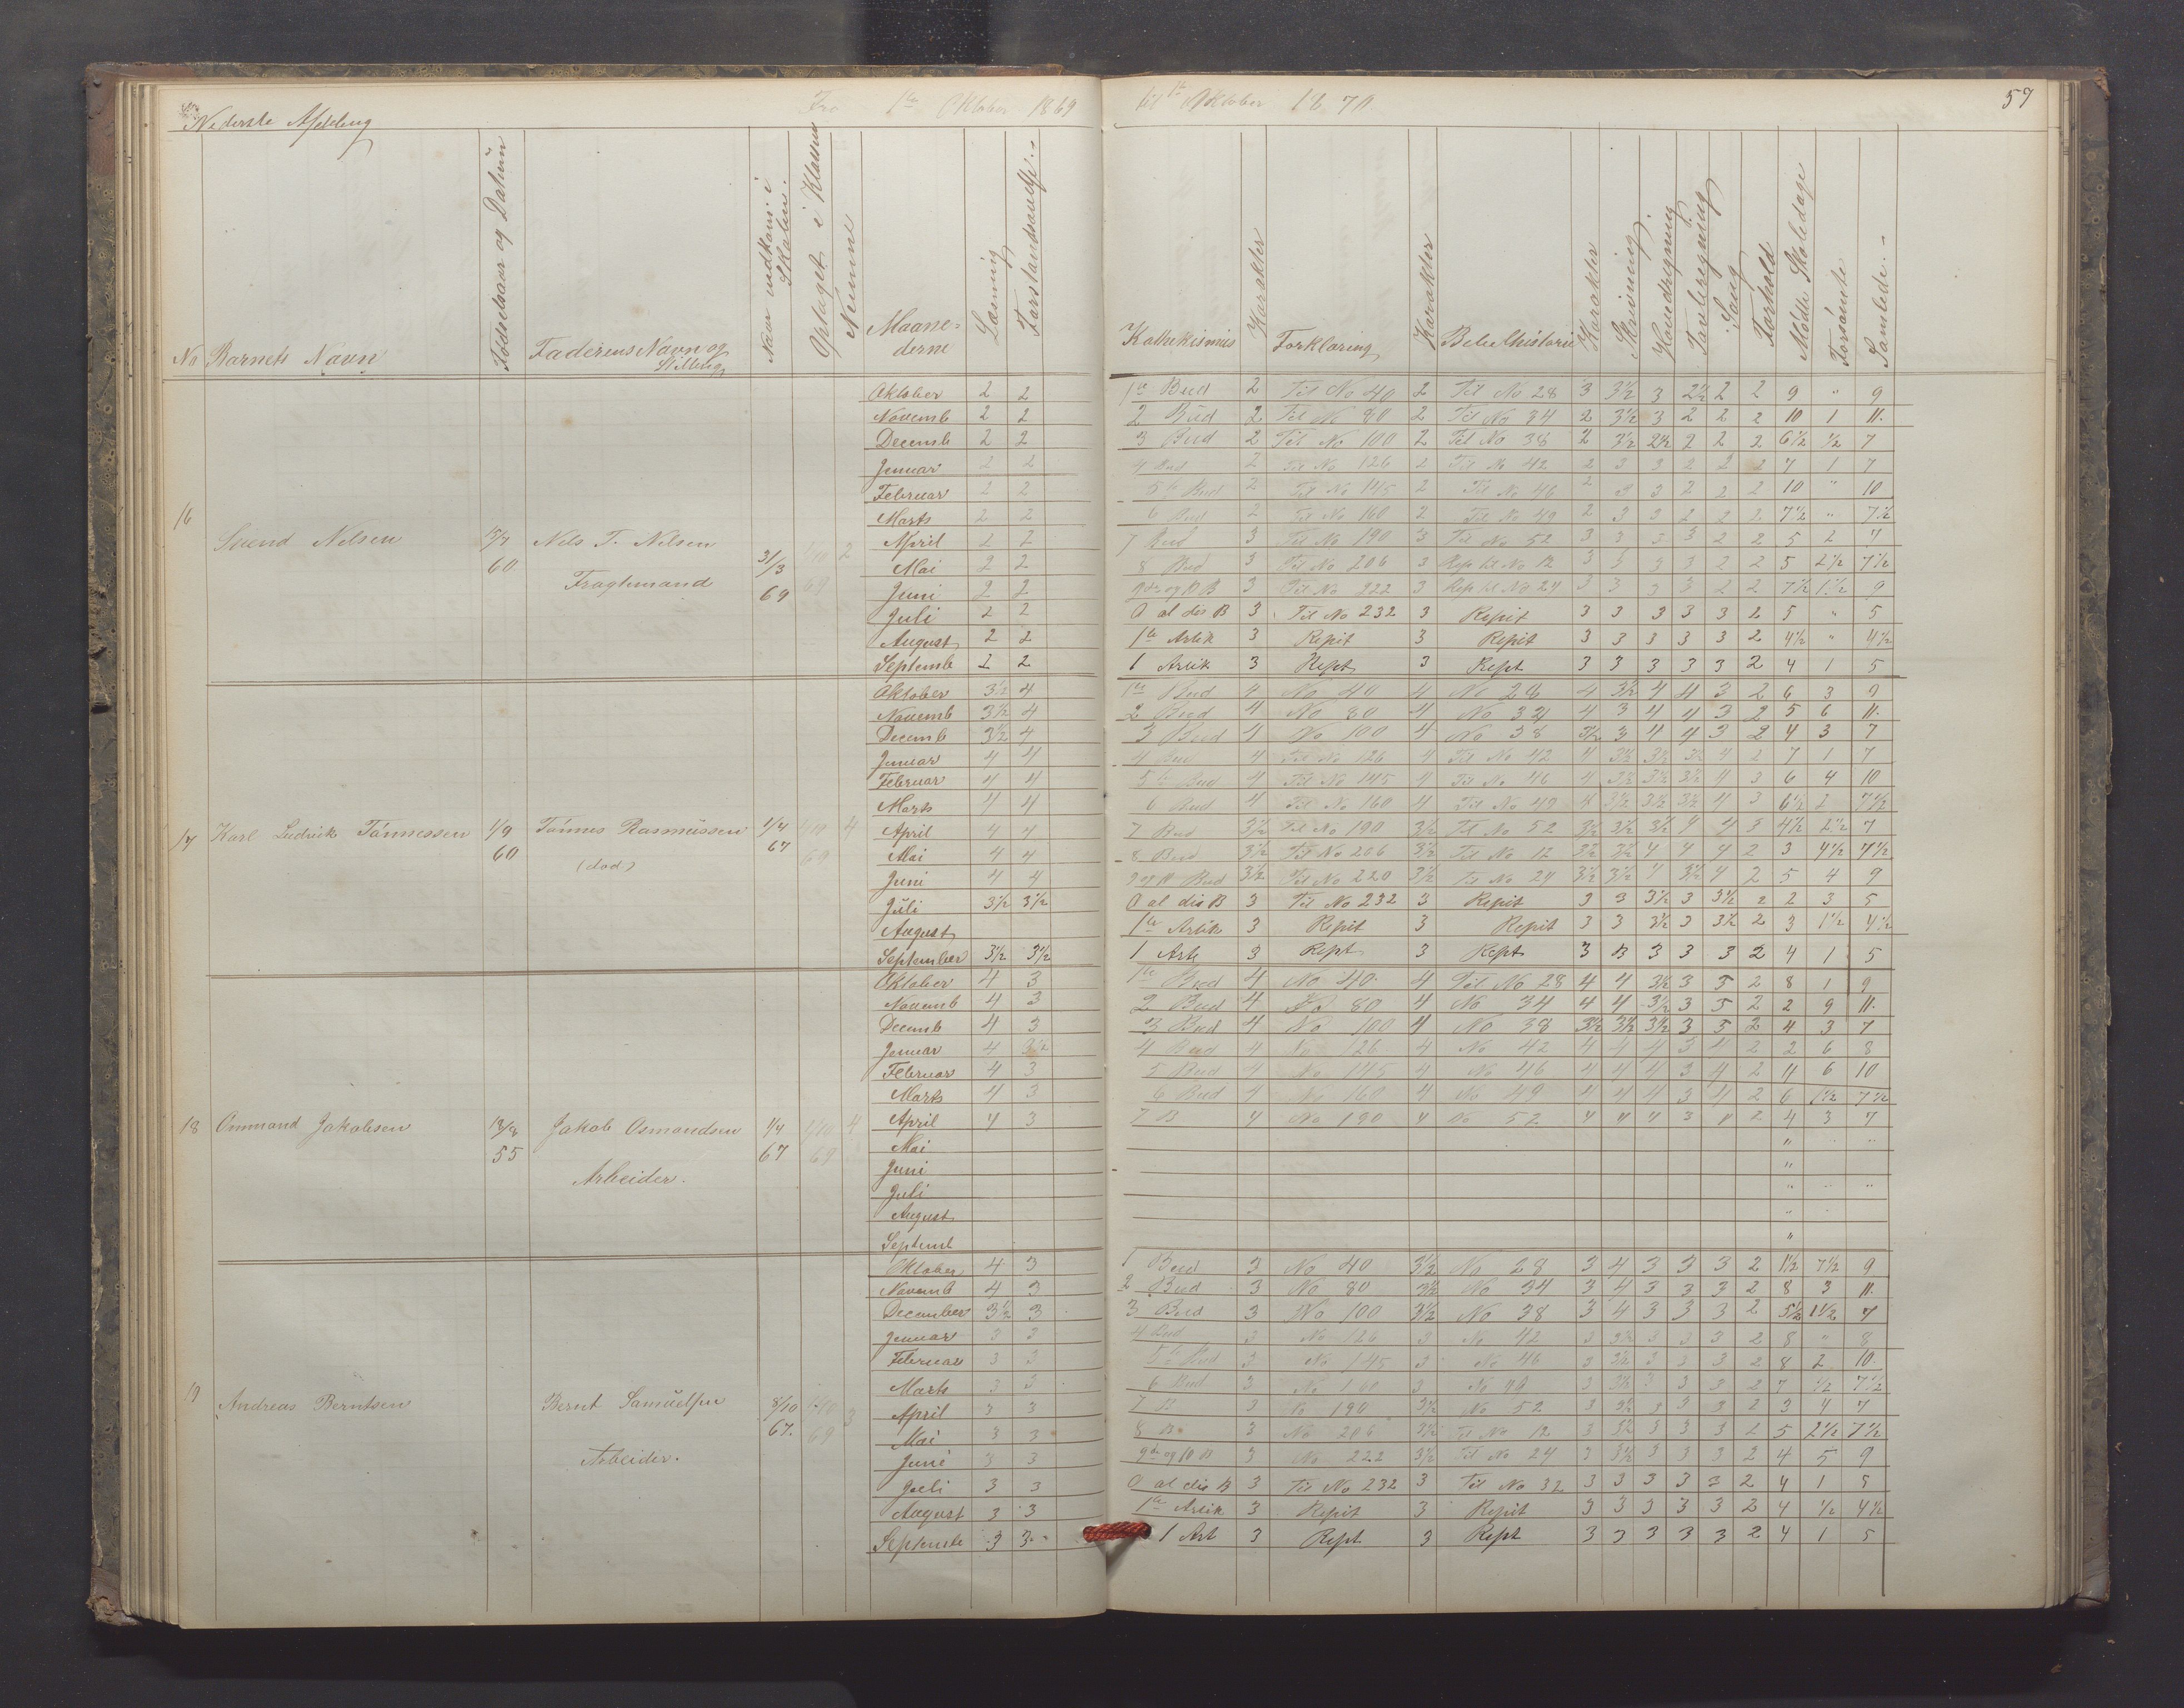 Nederste Afdeling Fra 1te Oktober 1869 til 1te Oktober 1870 57
No Barnets Navn Fødselsaar og Datum Faderens Navn og Stilling Naar indkom i Skolen. Optaget i Klassen Nemme Maanederne Læsning Forstandsøvelse. Kathekismus Karakter Forklaring Karakter Bibelhistorie Karakter Skrivning Hovedregning Tavleregning Sang Forhold Mødte Skoledage Forsømte Samlede.
16 Svend Nilsen 60 Nels T. Nilsen Fragtemand 31/3 69 1/10 69 2
Oktober 2 2 1te Bud 2 Til No 40 2 Til No 28 3 3½ 3 2½ 2 2 9 " 9
Novemb 2 2 2 Bud 2 Til No 80 2 Til No 34 2 3½ 3 2 2 2 10 1 11.
Decemb 2 2 3 Bud 2 Til No 100 2 Til No 38 2 3½ 2½ 2 2 2 6½ ½ 7
Januar 2 2 4 Bud 2 Til No 126 2 Til No 42 2 3 3 2 2 2 7 1 7
Februar 2 2 5te Bud 2 Til No 145 2 Til No 46 2 3 3 2 2 2 10 " 10
Marts 2 2 6 Bud 2 Til No 160 2 Til No 49 2 3 3 2 2 2 7½ " 7½
April 2 2 7 Bud 3 Til No 190 3 Til No 52 3 3 3 3 2 2 5 2 7
Mai 2 2 8 Bud 3 Til No 206 3 Rep til No 12 3 3 3 3 2 2 5 2½ 7½
Juni 2 2 9de og 10 B 3 Til No 222 3 Rep til No 24 3 3 3 3 2 2 7½ 1½ 9
Juli 2 2 O al dis B 3 Til No 232 3 Repit 3 3 3 3 3 2 5 " 5
August 2 2 1te Artik 3 Repit 3 Repit 3 3 3 3 3 2 4½ " 4½
Septemb 2 2 1 Artik 3 Rept 3 Rept 3 3 3 3 3 2 4 1 5
17 Karl Ludvik Tønnessen 1/9 60 Tønnes Rasmussen (død) 1/4 67 1/10 69 4
Oktober 3½ 4 1te Bud 4 No 40 4 No 28 4 3½ 4 4 3 2 6 3 9
Novemb 3½ 4 2 Bud 4 No 80 4 No 34 4 3 4 4 3 2 5 6 11.
Decemb 3½ 4 3 Bud 4 No 100 4 No 38 3½ 3 4 4 3 2 4 3 7
Januar 4 4 4 Bud 4 Til No 126 4 Til No 42 4 3½ 3½ 3½ 4 2 7 1 7
Februar 4 4 5te Bud 4 Til No 145 4 Til No 46 4 3½ 3½ 3½ 4 3 6 4 10
Marts 4 4 6 Bud 4 Til No 160 4 Til No 49 4 3½ 3½ 3½ 4 3 6½ 1 7½
April 4 4 7 Bud 3½ Til No 190 3½ Til No 52 3½ 3½ 3½ 4 4 3 4½ 2½ 7
Mai 4 4 8 Bud 3½ Til No 206 3½ Til No 12 3½ 3½ 4 4 4 2 3 4½ 7½
Juni 4 4 9 og 10 Bud 3½ Til No 220 3½ Til No 24 3½ 3½ 4 3½ 4 2 5 4 9
Juli 3½ 3½ O al dis B 3 Til No 232 3 Repit 3 3 3½ 3 3½ 2 2 3 5
August 1te Artik 3 Repit 3 Repit 3 3 3½ 3 3½ 2 3 1½ 4½
September 3½ 3½ 1 Art 3 Rept 3 Rept 3 3 3 3 3 2 4 1 5
18 Ommund Jakobsen 13/8 55 Jakob Osmondsen Arbeider. 1/4 67 1/10 69 4
Oktober 4 3 1te Bud 4 No 40. 4 Til No 28 4 4 3½ 3 3 2 8 1 9
Novemb 4 3 2 Bud 4 No 80 4 No 34 4 4 3½ 3 3 2 2 9 11.
Decemb 4 3 3 Bud 4 No 100 4 No 38 3½ 3½ 3½ 3 3 2 4 3 7
Januar 4 3½ 4 Bud 4 No 126 4 No 42 4 4 4 3 4 2 2 6 8
Februar 4 3 5 Bud 4 No 145 4 No 46 4 4 4 3 4 2 4 6 10
Marts 4 3 6 Bud 4 No 160 4 No 49 4 4 4 3 4 2 6 1½ 7½
April 4 3 7 B 4 No 190 4 No 52 4 4 4 3 4 2 4 3 7
Mai " "
Juni "
Juli " "
August "
Septemb "
19 Andreas Berntsen Bernt Samuelsen Arbeider. 8/10 67. 1/10 69 3
Oktober 4 3 1 Bud 3 No 40 3½ No 28 3 4 3 3 3 2 1½ 7½ 9
Novemb 4 3 2 Bud 3 No 80 3½ No 34 3 4 3 3 3 2 8 3 11.
December 3½ 3 3 Bud 3 No 100 3½ No 38 3 4 3 3 3 2 5½ 1½ 7
Januar 3 3 4 Bud 3 No 126 3 No 42 3 3½ 3 3 3 2 8 " 8
Februar 3 3 5te Bud 3 No 145 3 No 46 3 3½ 3 3 3 2 8 2 10.
Marts 3 3 6 Bud 3 No 160 3 No 49 3 3½ 3 3 3 2 7 ½ 7½
April 3 3 7 B 3 No 190 3½ No 52 3 3½ 3 3 3 2 3 4 7
Mai 3 3 8 B 3 No 206 3½ Til No 12 3 3½ 3 3 3 2 5 2½ 7½
Juni 3 3 9de og 10 B 3 No 222 3½ Til No 24 3 3½ 3 3 3 2 4 5 9
Juli 3 3 O al dis B 3 Til No 232 3 Til No 32 3 3 3 3 3 2 4 1 5
August 3 3 1te Artik 3 Repit 3 Repit 3 3 3 3 3 2 4 ½ 4½
Septembe 3 3 1 Art 3 Rept 3 Rept 3 3 3 3 3 2 4 1 5